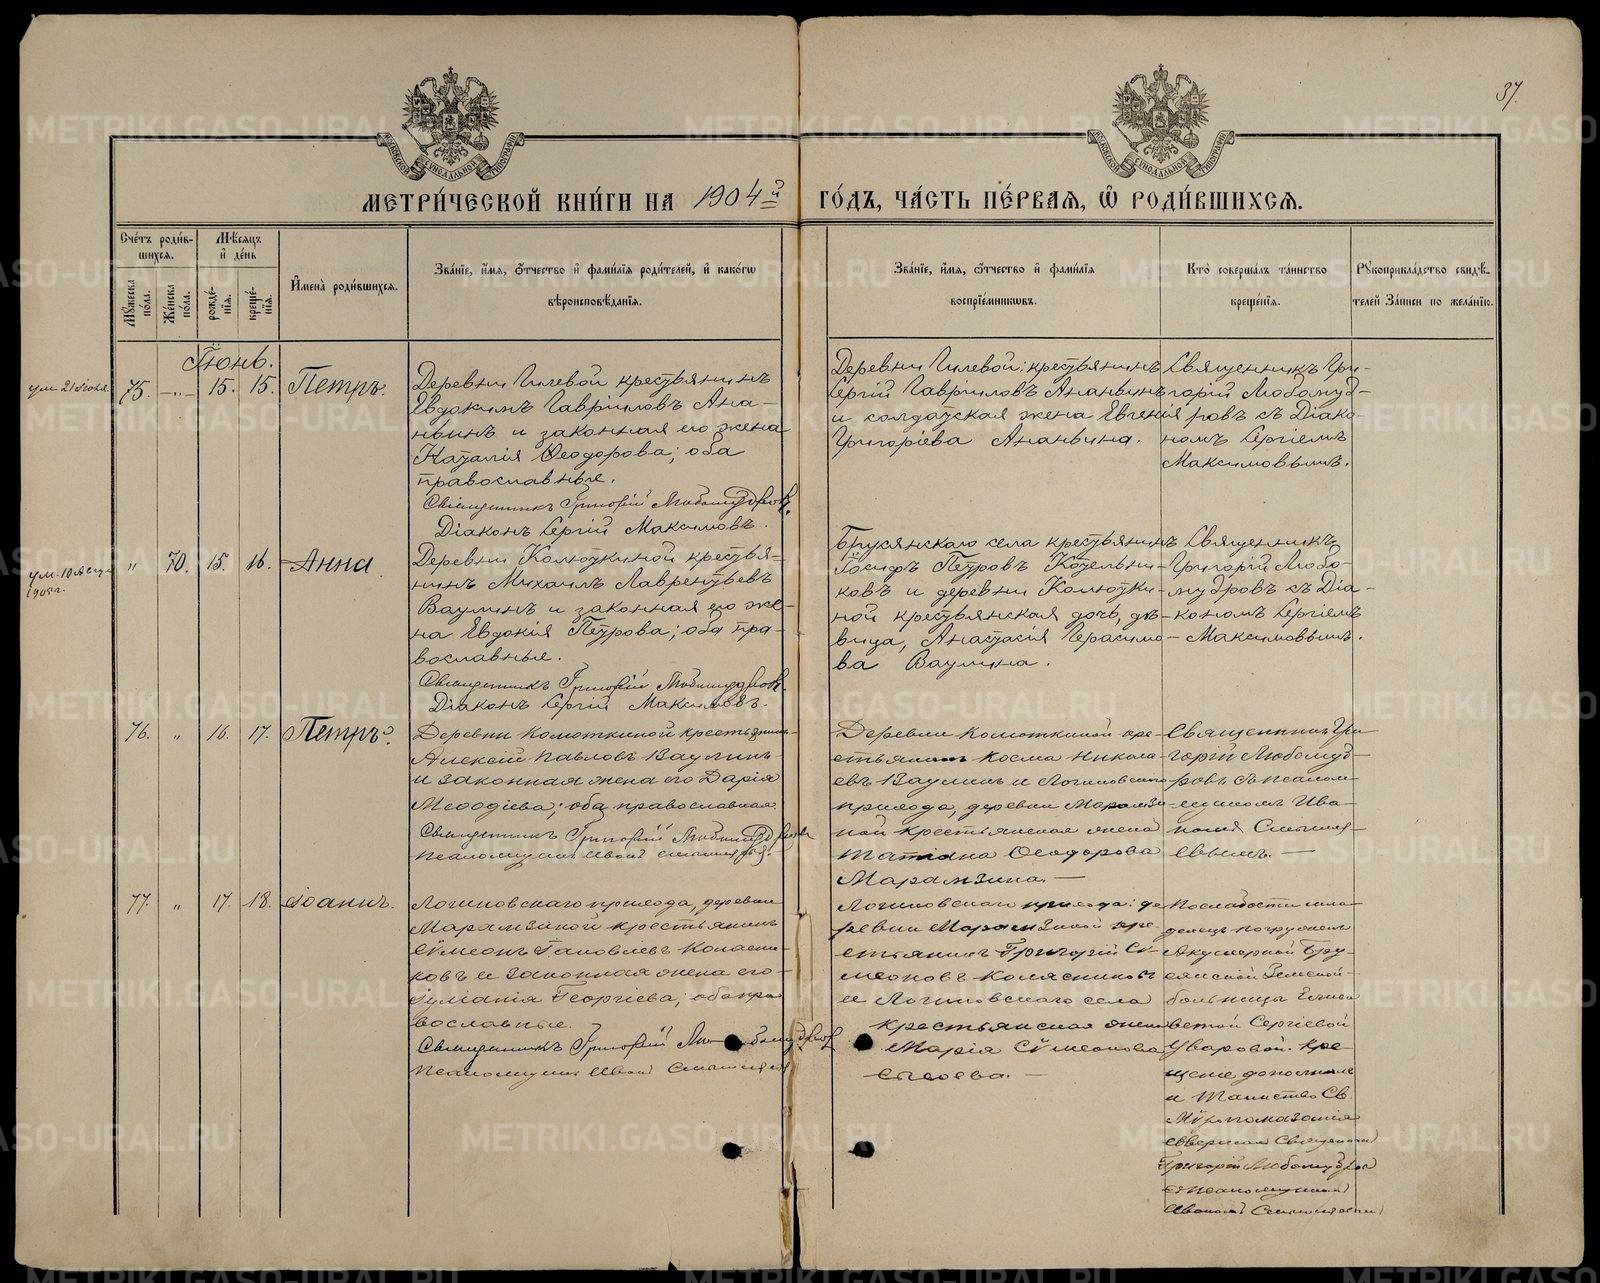 37.
МЕТРИ́ЧЕСКОЙ КНИ́ГИ НА 1904й ГО́ДЪ, ЧА́СТЬ ПЕ́РВАЯ, Ѡ РОДИ́ВШИХСЯ.
Сче́тъ роди́в-
шихся.
Мѣ́сяцъ
и҆ де́нь
Мꙋ́жеска
по́ла.
Же́нска
по́ла.
рожде́-
нїя.
креще́-
нїя.
И҆мена̀ роди́вшихся.
Зва́нїе, и҆́мя, ѻ҆́тчество и҆ фами́лїя роди́телей, и҆ како́гѡ
вѣроисповѣ́данїя.
Зва́нїе, и҆́мя, ѻ҆́тчество и҆ фами́лїя
воспрїе́мникѡвъ.
Кто̀ соверша́лъ та́инство
креще́нїя.
Рꙋкоприкла́дство свидѣ́-
телей за́писи по жела́нїю.
Іюнь.
ум. 21 Іюля.
75. —„— 15. 15. Петръ.
Деревни Гилевой крестьянинъ
Евдокимъ Гавріиловъ Ана-
ньинъ и законная его жена
Наталія Ѳеодорова; оба
православные.
Священникъ Григорій Любомудровъ.
Діаконъ Сергій Максимовъ.
Деревни Гилевой: крестьянинъ
Сергій Гавріиловъ Ананьинъ
и солдатская жена Евгенія
Григоріева Ананьина.
Священникъ Гри-
горій Любомуд-
ровъ съ Діако-
номъ Сергіемъ
Максимовымъ.
ум. 10 Август
1905 г.
„ 70. 15. 16. Анна
Деревни Колюткиной крестья-
нинъ Михаилъ Лаврентьевъ
Ваулинъ и законная его же-
на Евдокія Петрова; оба пра-
вославные.
Священникъ Григорій Любомудровъ.
Діаконъ Сергій Максимовъ.
Бруснянскаго села крестьянинъ
Іосифъ Петровъ Котельни-
ковъ и деревни Колютки-
ной крестьянская дочь, дѣ-
вица, Анастасія Герасимо-
ва Ваулина.
Священникъ
Григорій Любо-
мудровъ съ Діа-
кономъ Сергіемъ
Максимовымъ.
76. „ 16. 17. Петръ.
Деревни Колюткиной крестьянинъ
Алексій Павловъ Ваулинъ
и законная жена его Дарія
Меѳодіева; оба православные
Священникъ Григорій Любомудровъ
Псаломщикъ Иванъ
Деревни Колюткиной кре-
стьянинъ Косма Никола-
евъ Ваулинъ и Логиновскаго
прихода, деревни Марамзи-
ной крестьянская жена
Татіана Ѳеодорова
Марамзина. —
Священникъ Гри-
горій Любомуд-
ровъ съ псалом-
щикомъ Ива-
номъ
77. „ 17. 18. Іоаннъ.
Логиновскаго прихода, деревни
Марамзиной крестьянинъ
Сѵмеонъ Іаковлевъ Колясни-
ковъ и законная жена его
Іуліанія Георгіева; оба пра
вославные.
Священникъ Григорій Любомудровъ
Псаломщикъ Иванъ
Логиновскаго прихода: де
ревни Марамзиной кре-
стьянинъ Григорій Сѵ-
меоновъ Колясниковъ
и Логиновскаго села
крестьянская жена
Марія Сѵмеонова
По слабости мла-
денецъ погруженъ
Акушеркой Бру-
сянской Земской
больницы Елиса
ветой Сергіевой
Уваровой. Кре-
щеніе дополнилъ
и Таинство Св.
Мѵропомазанія
совершилъ Священникъ
Григорій Любомудровъ
съ псаломщикомъ
Иваномъ
METRIKI.GASO-URAL.RU